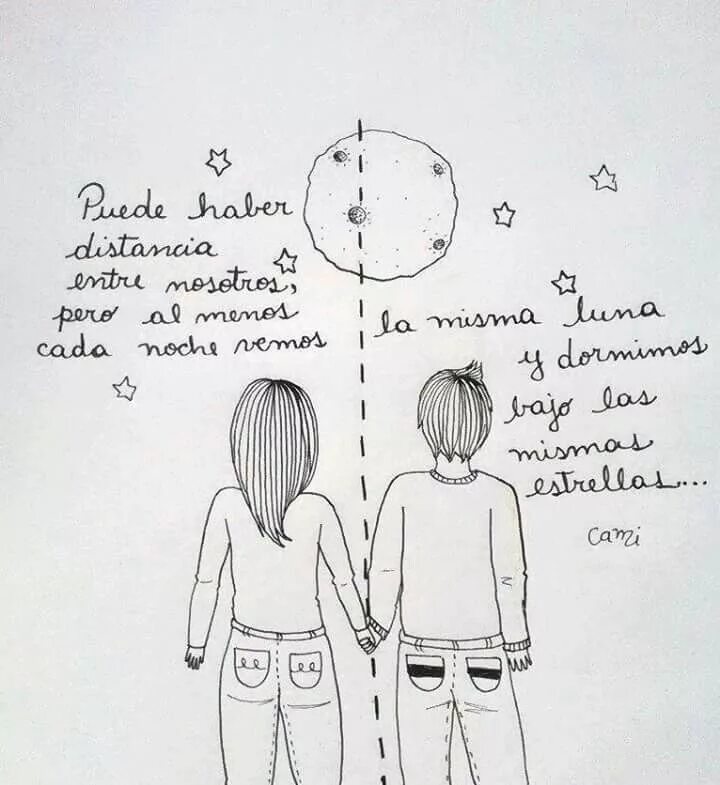 Puede haber
distancia
entre nosotros,
pero al menos
cada noche vemos
la misma luna
y dormimos
bajo las
mismas
estrellas...
Cami